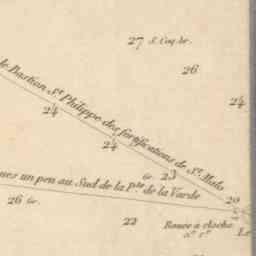 27 S. Coq. br.
26
24
le Bastion St. Philippe des fortifications de St. Malo
24
24
Gr. 23
ues un peu au Sud de la pte. de la Varde
26 Gr.
22
20
Bouée à cloche
Le